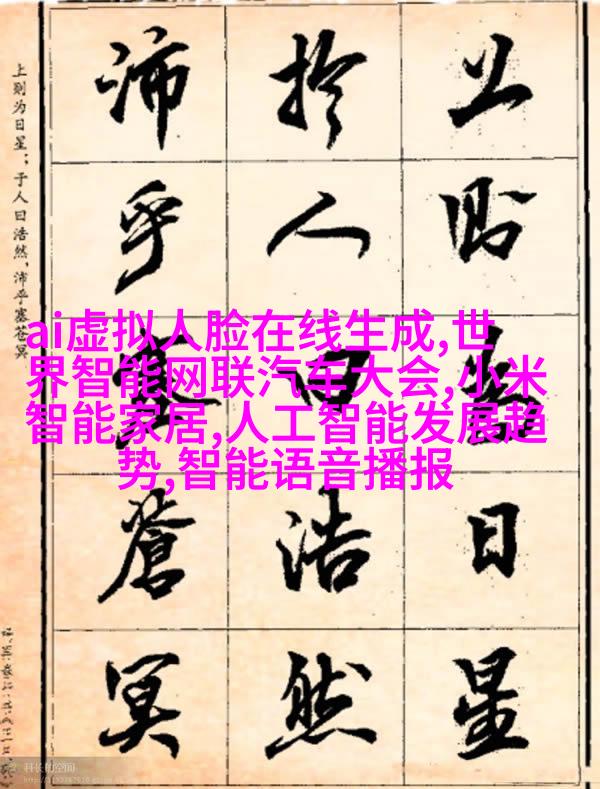 上则为日星
扵人曰浩然
沛乎塞蒼冥
上则为日星；于人曰浩然，沛乎塞苍冥
ai虚拟人脸在线生成,世
界智能网联汽车大会,小米
智能家居,人工智能发展趋
势,智能语音播报
科长的空间